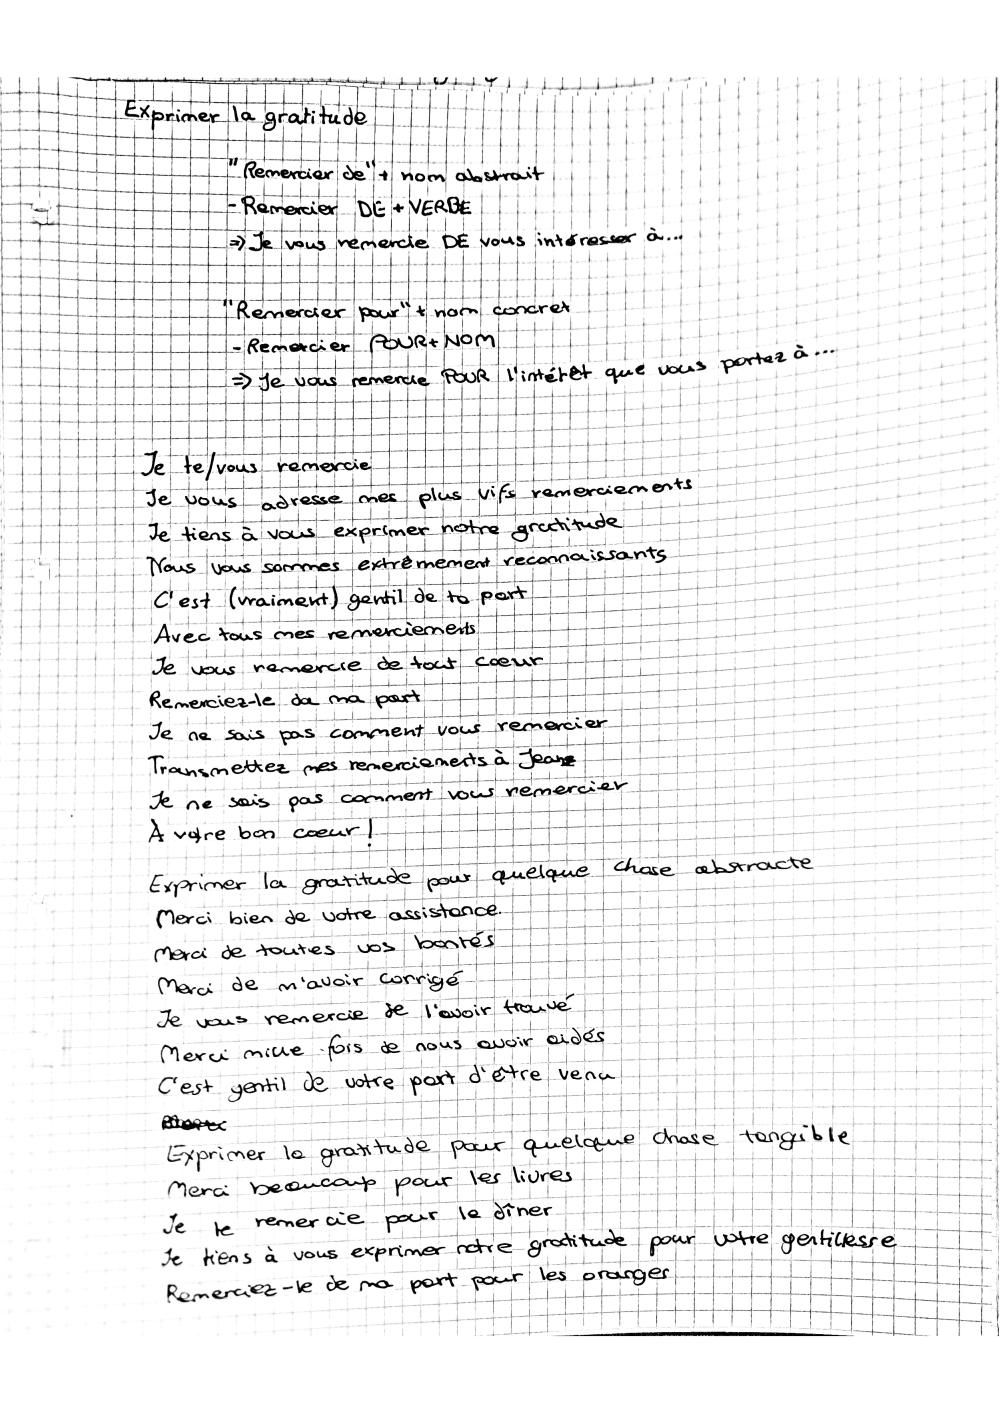 Exprimer la gratitude
"Remercier de" + nom abstrait
- Remercier DE + VERBE
=> Je vous remercie DE vous intéresser à...
"Remercier pour" + nom concret
- Remercier POUR + NOM
=> Je vous remercie POUR l'intérêt que vous portez à...
Je te/vous remercie
Je vous adresse mes plus vifs remerciements
Je tiens à vous exprimer notre gratitude
Nous vous sommes extrêmement reconnaissants
C'est (vraiment) gentil de ta part
Avec tous mes remerciements
Je vous remercie de tout coeur
Remerciez-le da ma part
Je ne sais pas comment vous remercier
Transmettez mes remerciements à Jean
Je ne sais pas comment vous remercier
À votre bon coeur !
Exprimer la gratitude pour quelque chose abstracte
Merci bien de votre assistance.
Merci de toutes vos bontés
Merci de m'avoir corrigé
Je vous remercie de l'avoir trouvé
Merci mille fois de nous avoir aidés
C'est gentil de votre part d'être venu
Exprimer la gratitude pour quelque chose tangible
Merci beaucoup pour les livres
Je te remercie pour le dîner
Je tiens à vous exprimer notre gratitude pour votre gentillesse
Remerciez-le de ma part pour les oranges